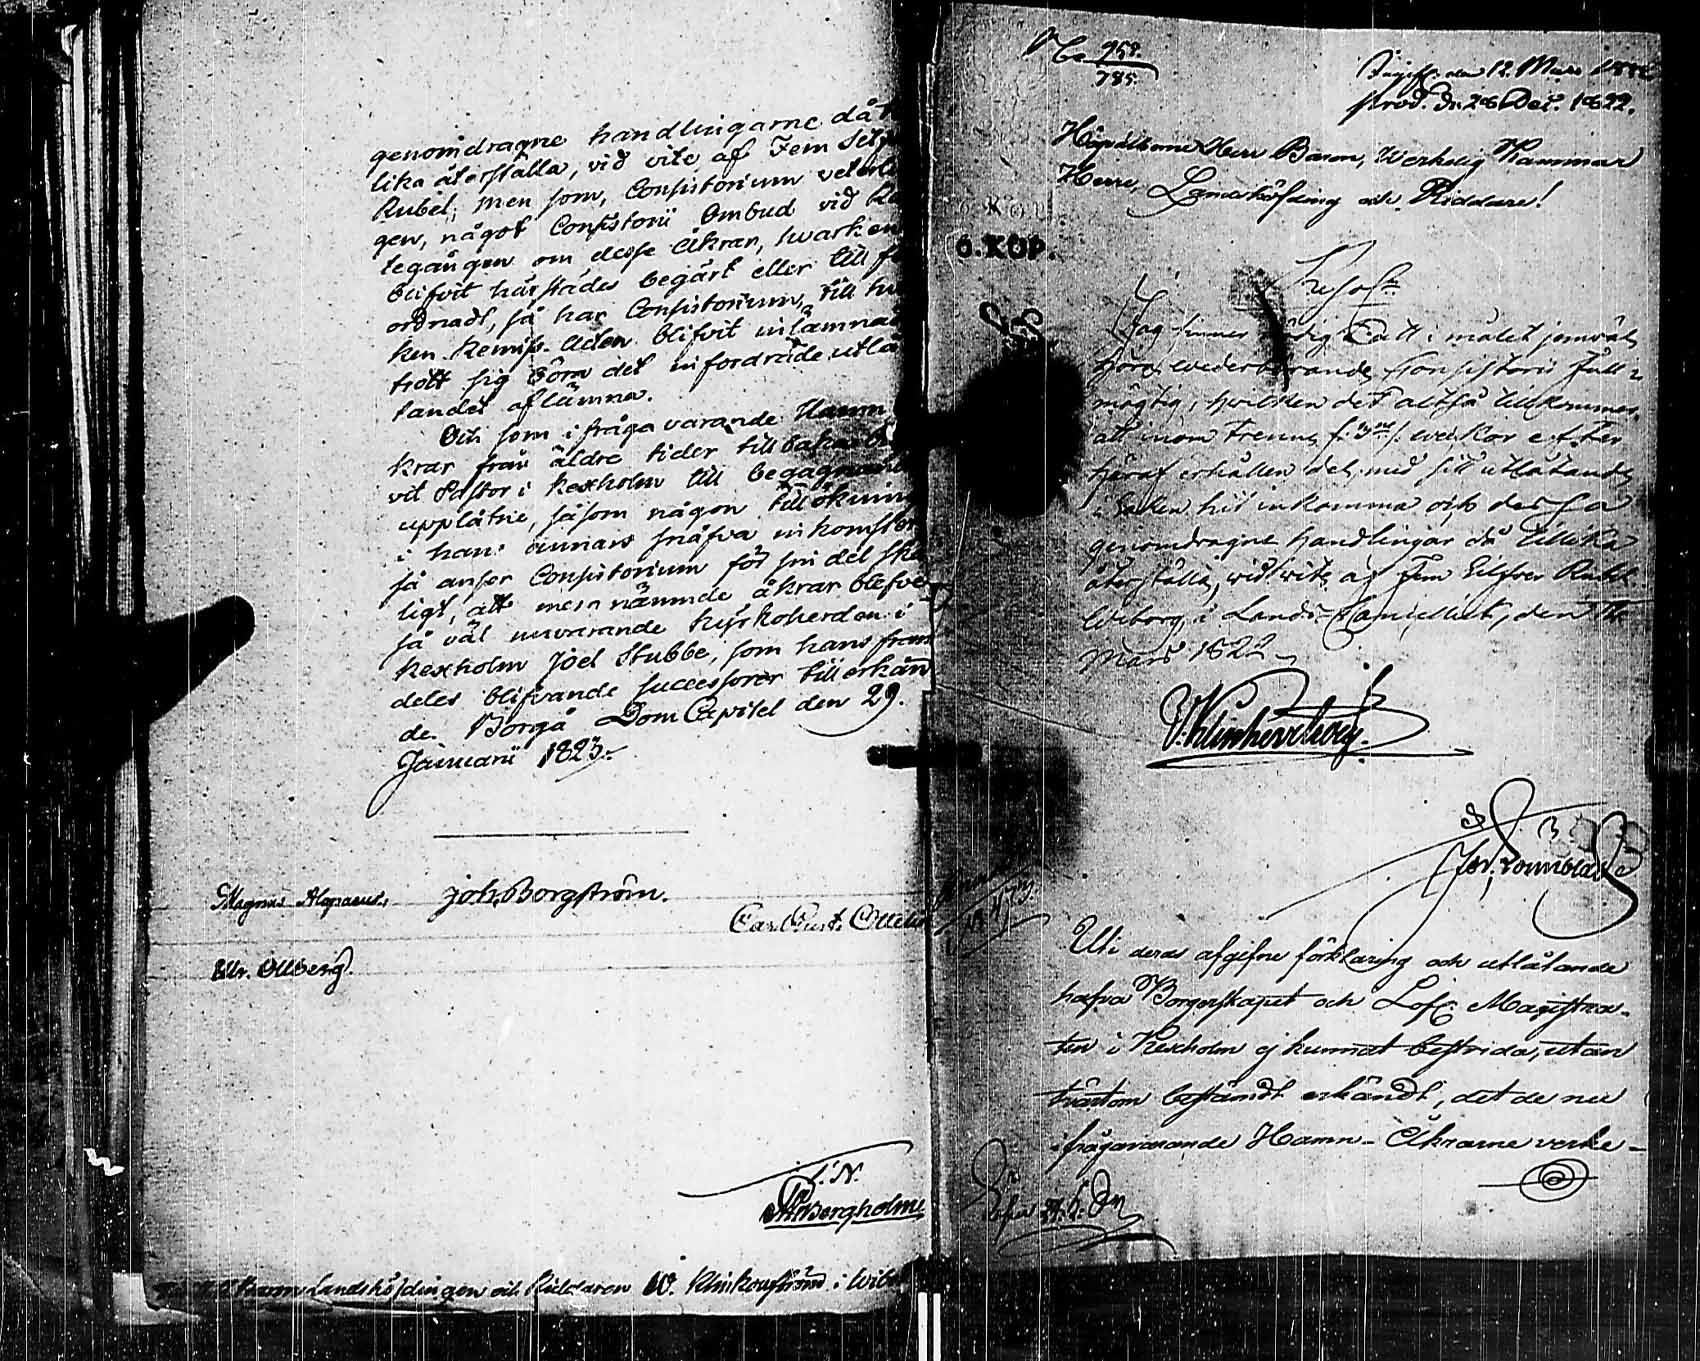 genomdragne handlingarne då t
lika återställa, vid vite af Fem Silf
Rubel; men som, Consistorium veterl
gen, något Consistorii Ombud vid
tegången om desse åkrar, hwarken
blifvit härstädes begärt eller till
ordnadt, så har Consistorium, till
ken Remiss-Acten blifvit inlämnad
trött sig böra det infordrade utlå
tandet aflämna.
Och som ifrågavarande Hamn
krar från äldre tider tillbaka
vit Pastor i Kexholm till begagnande
upplåtne, såsom någon tillökning
i hans annars snäfva inkomster
så anser Consistorium för sin del skä
ligt, att mera nämnde åkrar blefve
så väl nuvarande Kyrkoherden i
Kexholm Joel Stubbe, som hans fram
deles blifvande successorer tillerkän
de. Borgå DomCapitel den 29.
Januarii 1823.
Magnus Alopaeus.
Joh. Borgström.
Carl Gust. Ottelin
Ulr. Ollberg.
Bergholm
Landshöfdingen och Riddaren W. Klinkowström i Wibo
No 758.
785.
Ingif. den 12. Mars
prod. d. 28 Dec. 1822.
Högvälborne Herr Baron, Werkelig Kammar
Herre, Landshöfding och Riddare!
6. KOP.
Resol.
Jag finner att i målet jemväl
höra wederbörande Consistorii Full-
mägtig, hvilken det altså tillkommer,
att inom Trenne f. 3ne /. weckor efter
häraf erhållen del, med sitt utlåtande
i Saken hit inkomma och dessa
genomdragne handlingar då tillika
återställa, wid wite af Fem Silfver Rubel.
Wiborg i Lands-Cancelliet, den
Mars 1822
Uti deras afgifne förklaring och utlåtande
hafva Borgerskapet och Lofl. Magistra-
ten i Kexholm ej kunnat bestrida, utan
tvärtom beständt erkändt, det de nu
ifrågavarande Hamn-Åkrarne verke-